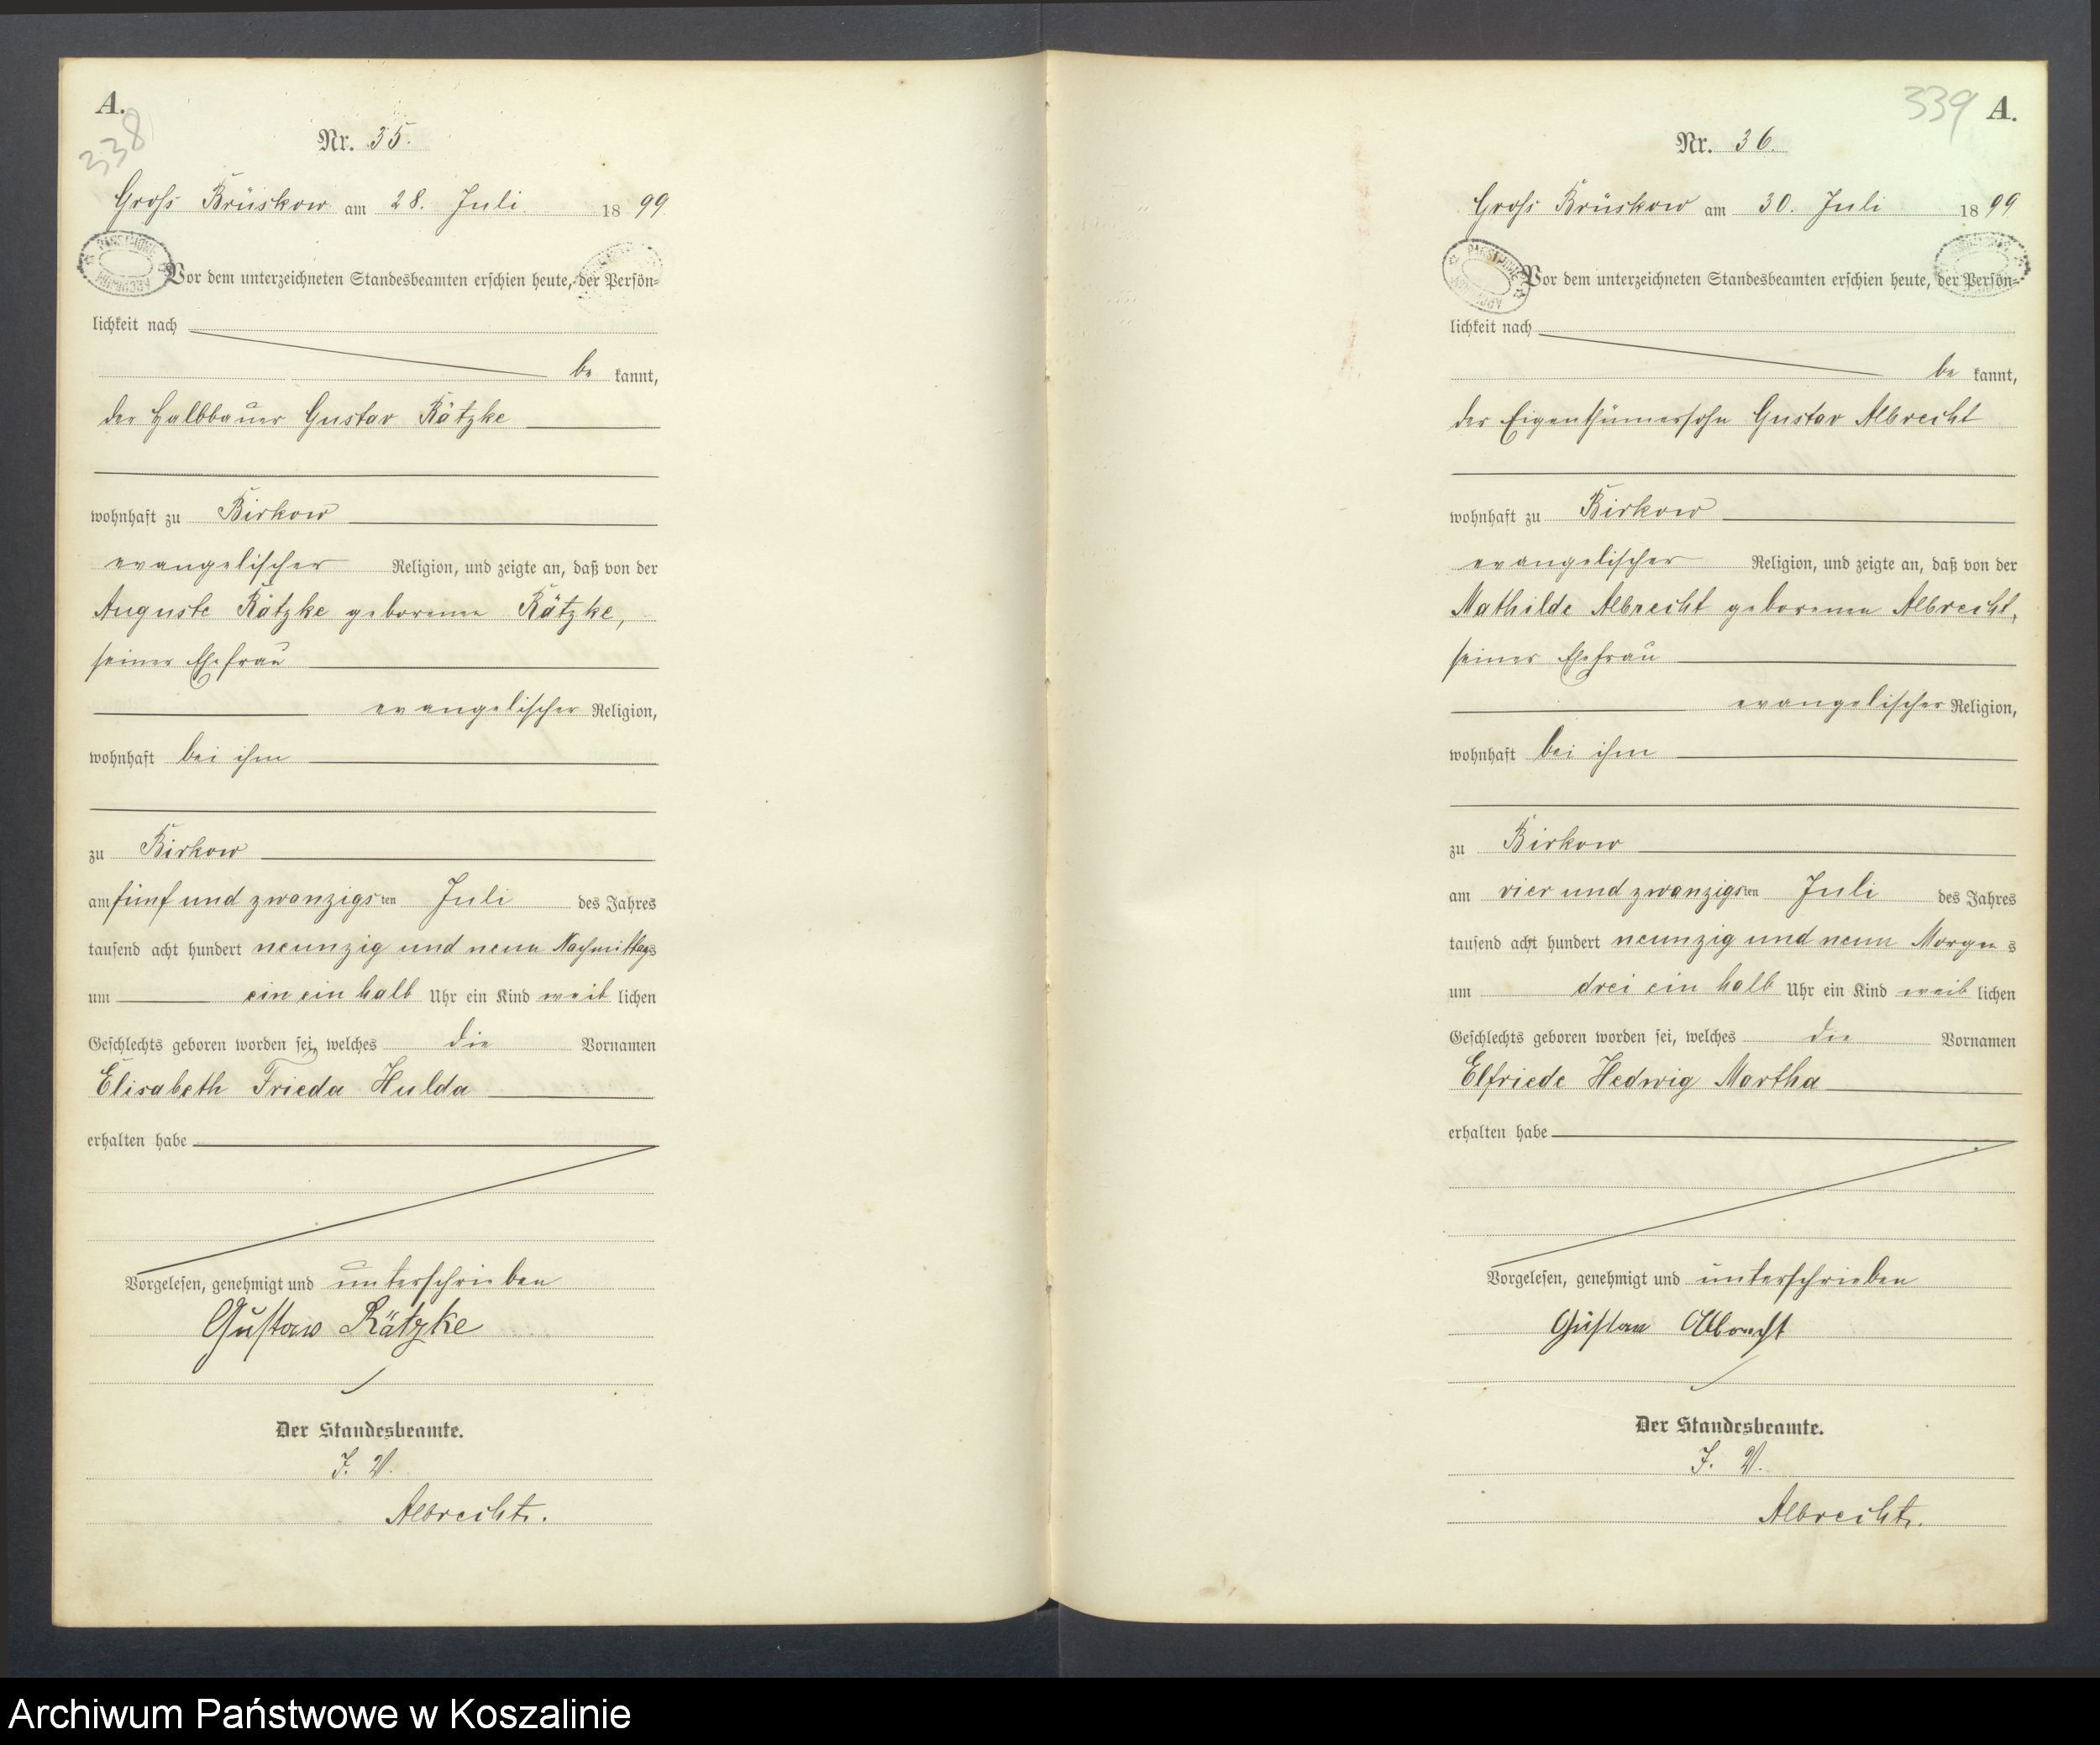 A.
338
Nr. 35.
Gross Brüskow am 28. Juli 1899
Vor dem unterzeichneten Standesbeamten erschien heute, der Persön-
lichkeit nach
be kannt,
der Halbbauer Gustav Rätzke
wohnhaft zu Birkow
evangelischer Religion, und zeigte an, daß von der
Auguste Rätzke geborenen Rätzke,
seiner Ehefrau
evangelischer Religion,
wohnhaft bei ihm
zu Birkow
am fünf und zwanzigsten Juli des Jahres
tausend acht hundert neunzig und neun Nachmittags
um ein ein halb Uhr ein Kind weiblichen
Geschlechts geboren worden sei, welches die Vornamen
Elisabeth Frieda Hulda
erhalten habe
Vorgelesen, genehmigt und unterschrieben
Gustav Rätzke
Der Standesbeamte.
J. V.
Albrecht.
339 A.
Nr. 36.
Gross Brüskow am 30. Juli 1899
Vor dem unterzeichneten Standesbeamten erschien heute, der Persön-
lichkeit nach
be kannt,
der Eigenthümersohn Gustav Albrecht
wohnhaft zu Birkow
evangelischer Religion, und zeigte an, daß von der
Mathilde Albrecht geborenen Albrecht,
seiner Ehefrau
evangelischer Religion,
wohnhaft bei ihm
zu Birkow
am vier und zwanzigsten Juli des Jahres
tausend acht hundert neunzig und neun Morgens
um drei ein halb Uhr ein Kind weiblichen
Geschlechts geboren worden sei, welches die Vornamen
Elfriede Hedwig Martha
erhalten habe
Vorgelesen, genehmigt und unterschrieben
Gustav Albrecht
Der Standesbeamte.
J. V.
Albrecht.
Archiwum Państwowe w Koszalinie